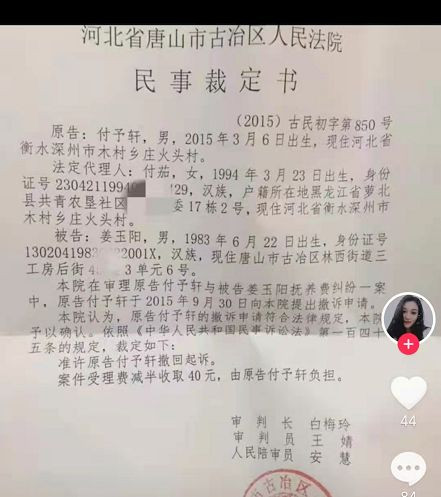 河北省唐山市古冶区人民法院
民事裁定书
（2015）古民初字第850号
原告：付予轩，男，2015年3月6日出生，现住河北省
衡水深州市木村乡庄火头村。
法定代理人：付茄，女，1994年3月23日出生，身份
证号230421199429，汉族，户籍所在地黑龙江省萝北
县共青农垦社区委17栋2号，现住河北省衡水深州市
木村乡庄火头村。
被告：姜玉阳，男，1983年6月22日出生，身份证号
1302041983001X，汉族，现住唐山市古冶区林西街道三
工房后街43单元6号。
本院在审理原告付予轩与被告姜玉阳抚养费纠纷一案
中，原告付予轩于2015年9月30日向本院提出撤诉申请。
本院认为，原告付予轩的撤诉申请符合法律规定，本院
予以确认。依照《中华人民共和国民事诉讼法》第一百四十
五条的规定，裁定如下：
准许原告付予轩撤回起诉。
案件受理费减半收取40元，由原告付予轩负担。
审判长 白梅玲
审判员 王婧
人民陪审员 安慧
古冶区
44
84